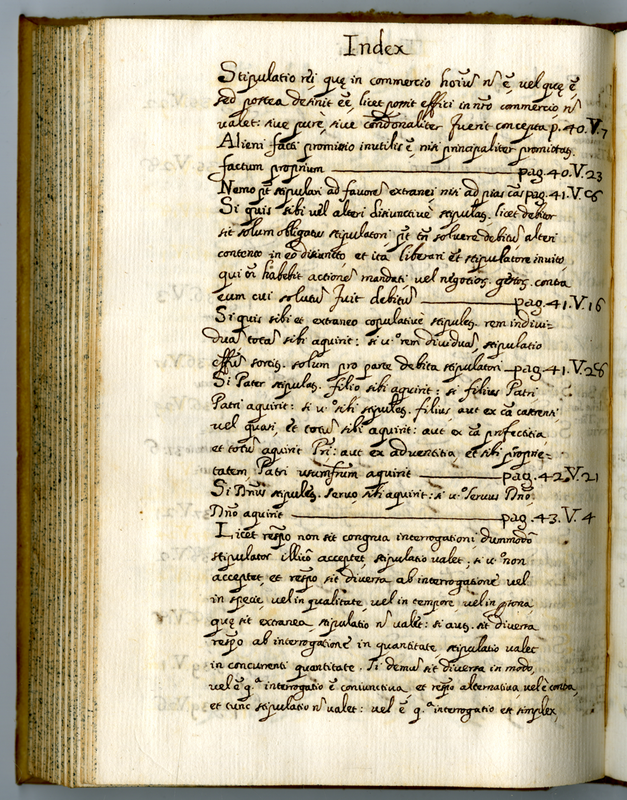 Index
Stipulatio rei quę in commercio hoĩu nõ ẽ, vel quę ẽ,
sed postea desinit eẽ, licet possit effici in nro commercio, nõ
valet: siue purè, siue condõnaliter fuerit concepta p. 40. V. 7
Alieni facti promissio inutilis ẽ, nisi principaliter promittas
factum proprium pag. 40. V. 23
Nemo põt stipulari ad fauorẽ extranei nisi ad pias cãs pag. 41. V. 06
Si quis sibi vel alteri disiunctiuè stipulet., licet debitor
sit solum obligatus stipulatori, põt tñ soluere debitũ alteri
contento in eo disiuncto et ita liberari et stipulatore inuito
qui oĩ habebit actionẽ mandati vel negotios. gestos. contra
eum cui solutũ fuit debitũ pag. 41. V. 16
Si quis sibi et extraneo copulatiuè stipulet. rem indiui-
duã totã sibi aquirit: si u.º rem diuiduã, stipulatio
solum pro parte debita stipulatori pag. 41. V. 26
Si Pater stipulet. filio sibi aquirit: si filius Patri
Patri aquirit: si u.º sibi stipulet. filius, aut ex cã castrensi
vel quasi, et totũ sibi aquirit: aut ex cã profectitia
et totũ aquirit Pri: aut ex aduentitia et sibi proprie-
tatem Patri usumfrum aquirit pag. 42. V. 21
Si Dñus stipulet. seruo, sibi aquirit: si u.º seruus Dño,
Dño aquirit pag. 43. V. 4
Licet respo non sit congrua interrogationi, dummodo
stipulator illicò acceptet, stipulatio valet; si u.º non
acceptet, et respo sit diuersa ab interrogatione vel
in specie, vel in qualitate, vel in tempore, vel in psona
quę sit extranea, stipulatio nõ valet: si aut. sit diuersa
respo ab interrogatione in quantitate stipulatio valet
in concurrenti quantitate. Si demũ sit diuersa in modo,
vel ẽ q.ª interrogatio ẽ coniunctiua, et respo alternatiua vel è contra,
et tunc stipulatio nõ valet: vel ẽ q.ª interrogatio est simplex,